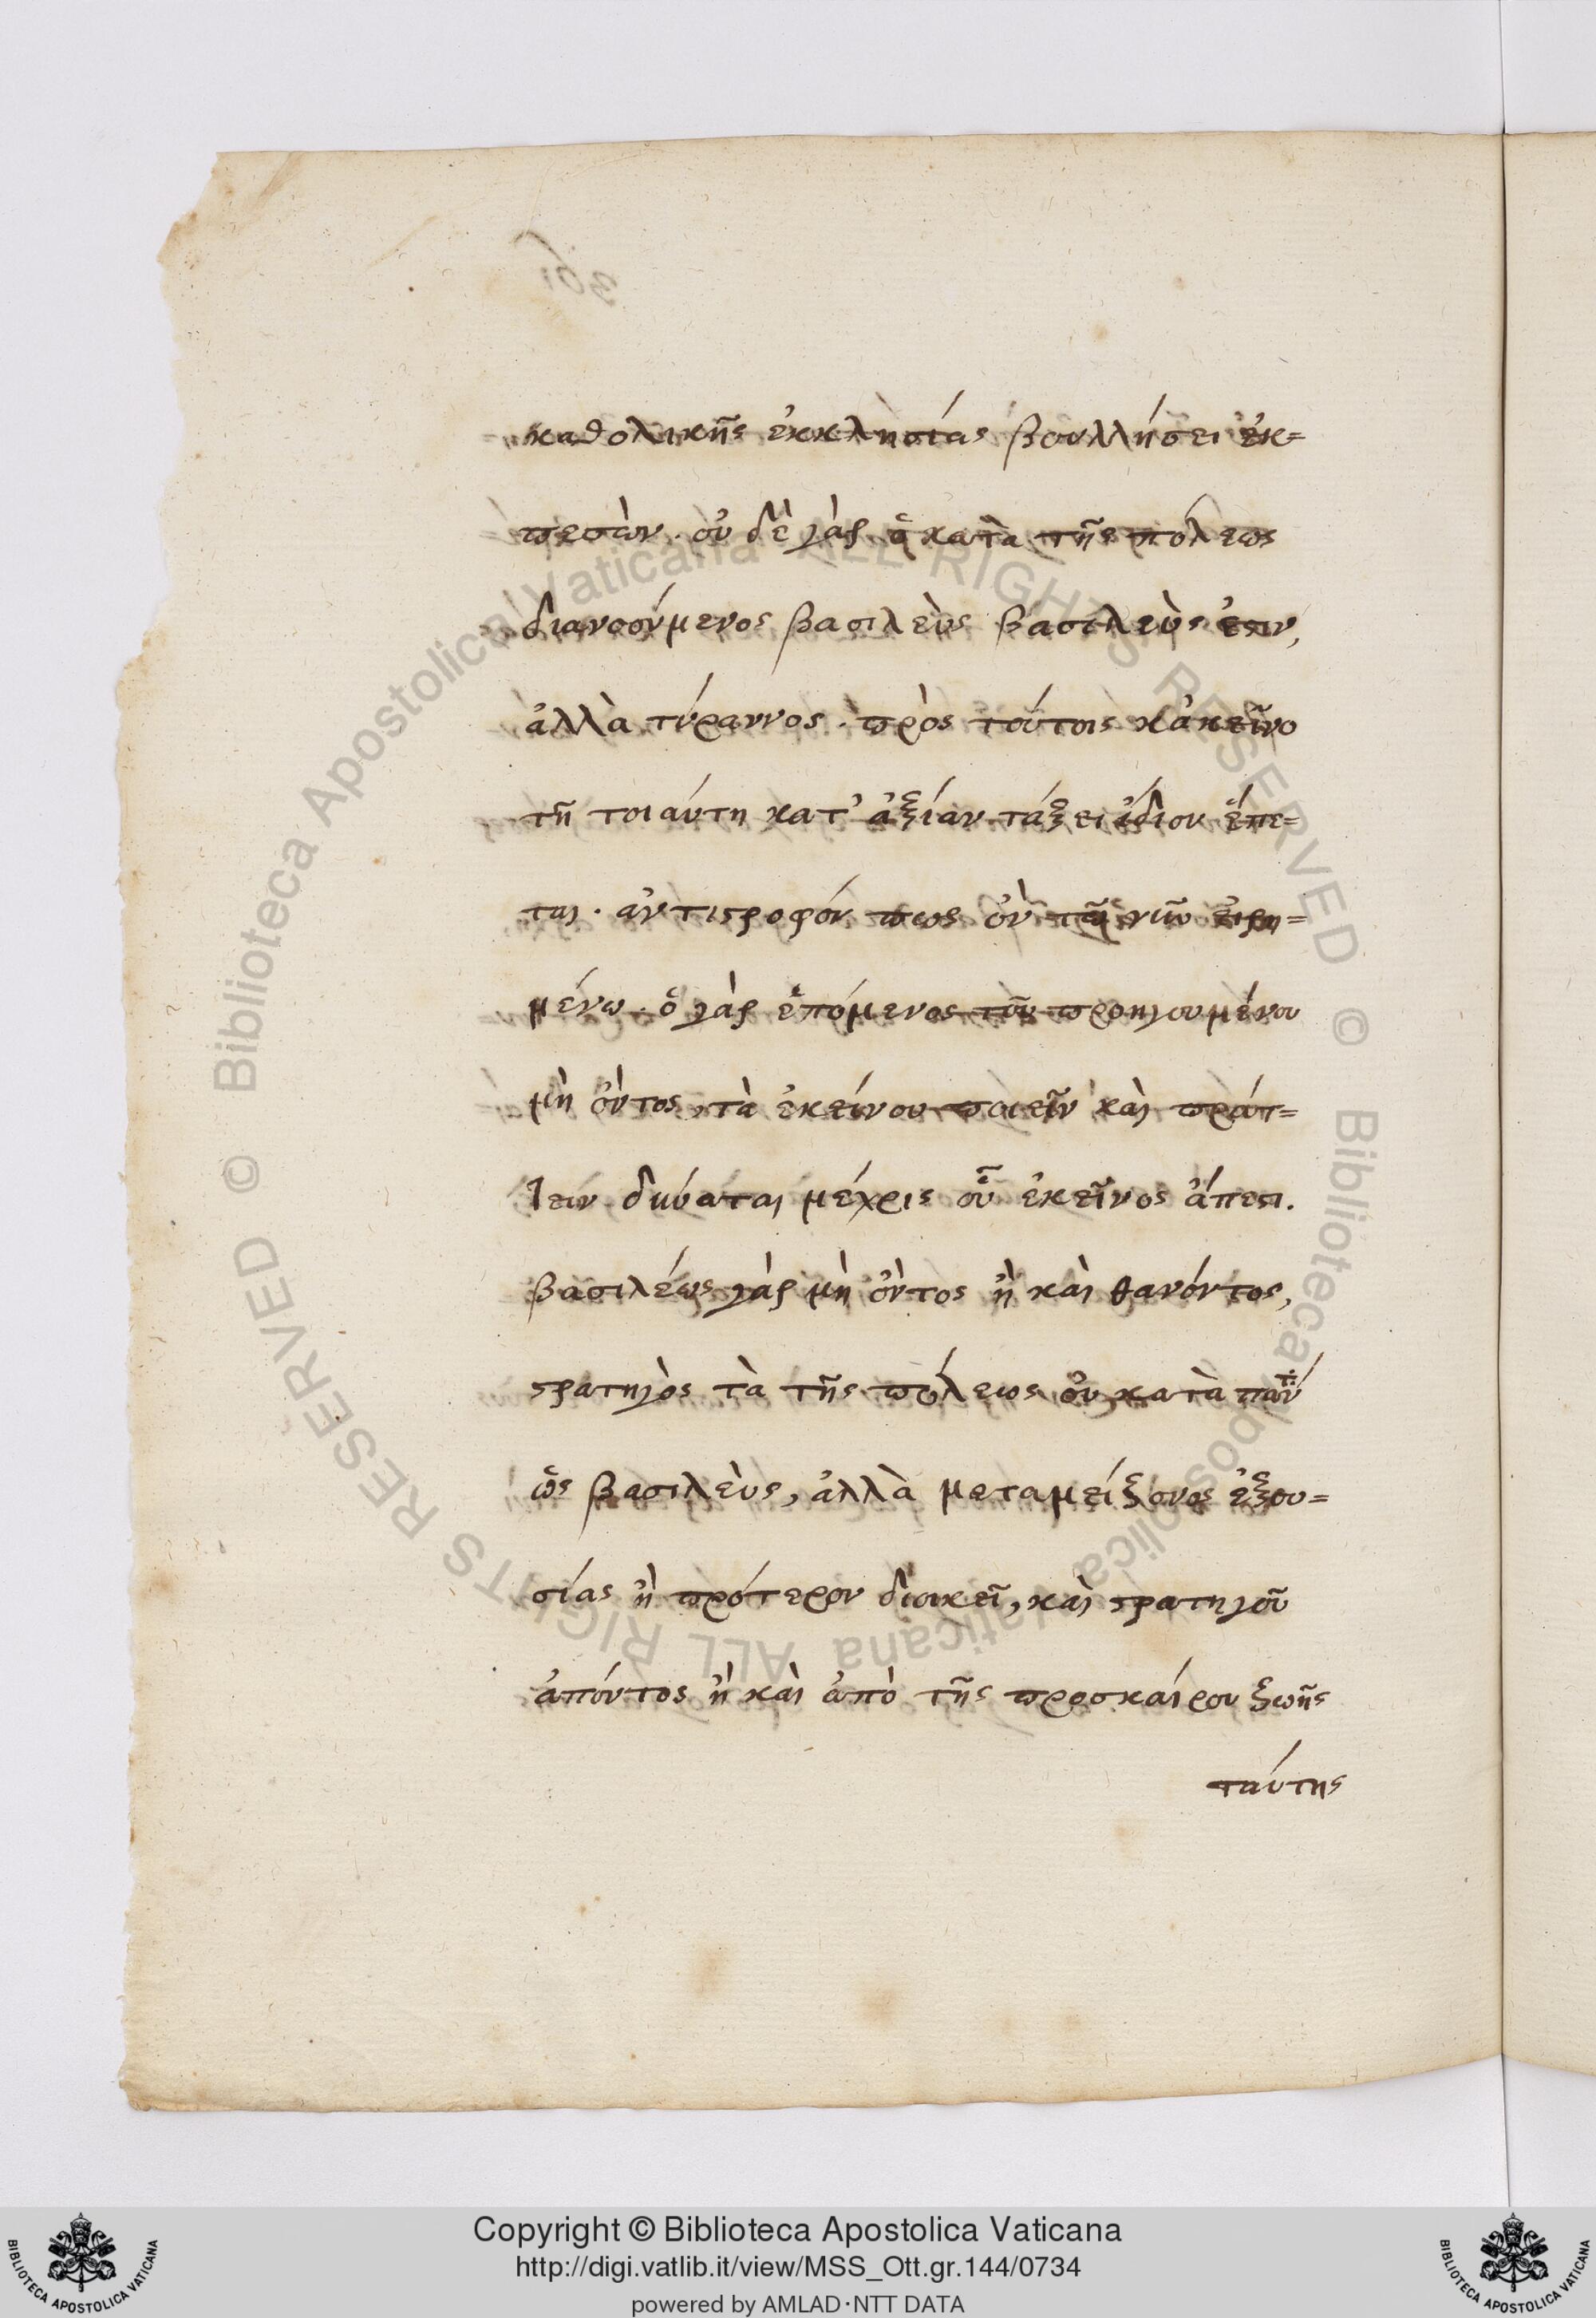 καθολικῆς ἐκκλησίας βουλλήσει ἐκ=
πεσὼν. οὐ δὲ γὰρ ὁ κατὰ τῆς πόλεως
διανοούμενος βασιλεὺς βασιλεὺς ἐστιν,
ἀλλὰ τύραννος. πρὸς τούτοις κἀκεῖνο
τῆ τοιαύτη κατ' ἀξίαν τάξει ἴδιον ἕπε=
ται. ἀντιστροφόν πως ὂν τῶ νῦν εἰρη=
μένω. ὁ γὰρ ἑπόμενος τοῦ προηγουμένου
μὴ ὄντος, τὰ ἐκείνου ποιεῖν καὶ πράτ=
τειν δύναται μέχρις οὗ ἐκεῖνος ἄπεστι.
βασιλέως γὰρ μὴ ὄντος ἢ καὶ θανόντος,
στρατηγὸς τὰ τῆς πόλεως οὐ κατὰ πάντ
ὡς βασιλεὺς, ἀλλὰ μετα μείζονος ἐξου=
σίας ἢ πρότερον διοικεῖ, καὶ στρατηγοῦ
ἀπόντος ἢ καὶ ἀπὸ τῆς προσκαίρου ζωῆς
ταύτης
© Biblioteca Apostolica Vaticana ALL RIGHTS RESERVED © Biblioteca Apostolica Vaticana ALL RIGHTS RESERVED
BIBLIOTECA APOSTOLICA VATICANA
Copyright © Biblioteca Apostolica Vaticana
http://digi.vatlib.it/view/MSS_Ott.gr.144/0734
powered by AMLAD·NTT DATA
BIBLIOTECA APOSTOLICA VATICANA